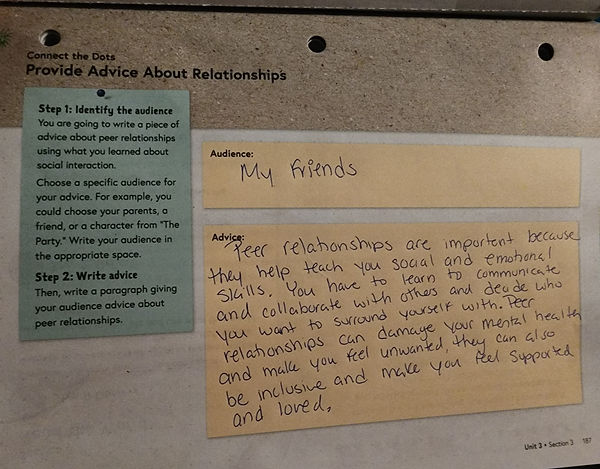 Connect the Dots
Provide Advice About Relationships
Step 1: Identify the audience
You are going to write a piece of
advice about peer relationships
using what you learned about
social interaction.
Choose a specific audience for
your advice. For example, you
could choose your parents, a
friend, or a character from "The
Party." Write your audience in
the appropriate space.
Step 2: Write advice
Then, write a paragraph giving
your audience advice about
peer relationships.
Audience:
My Friends
Advice:
Peer relationships are important because
they help teach you social and emotional
skills. You have to learn to communicate
and collaborate with others and decide who
you want to surround yourself with. Peer
relationships can damage your mental health
and make you feel unwanted, they can also
be inclusive and make you feel supported
and loved.
Unit 3 • Section 3 187